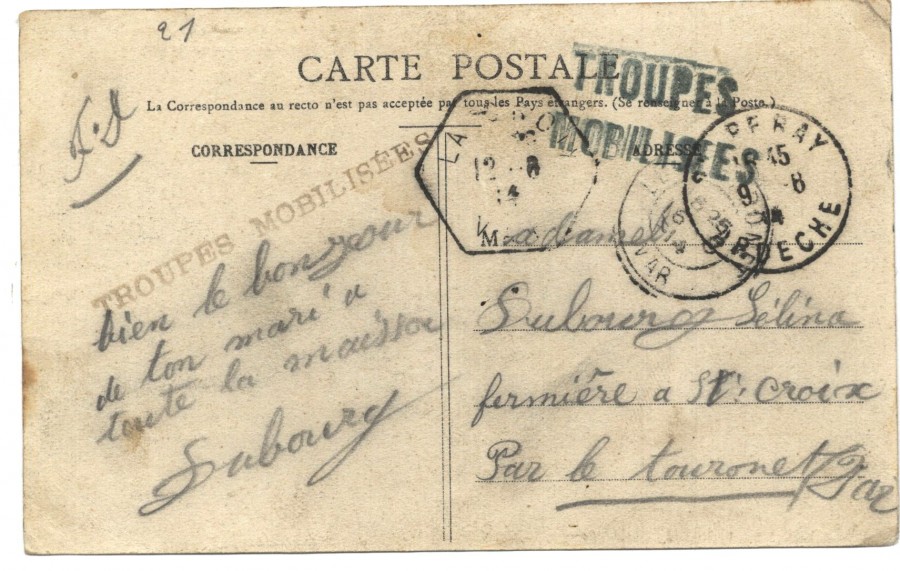 21
CARTE POSTALE
La Correspondance au recto n'est pas acceptée par tous les Pays étrangers. (Se renseigner à la Poste.)
F.
CORRESPONDANCE
ADRESSE
TROUPES MOBILISÉES
TROUPES
MOBILISÉES
LA
12 -8
14
V
PERAY
15
-8
ARDECHE
16
14
VAR
bien le bonzour
de ton mari a
toute la maison
Dubourg
Madame
Dubourg Sélina
fermière a St. Croix
Par le touronet Var